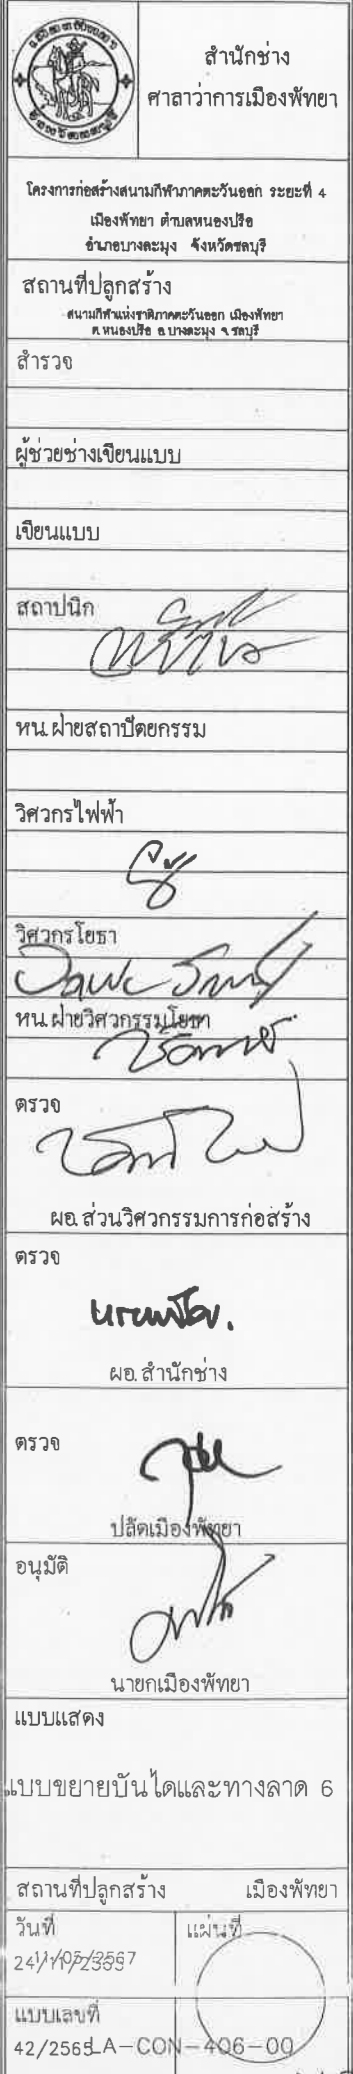 สำนักช่าง
ศาลาว่าการเมืองพัทยา
โครงการก่อสร้างสนามกีฬาภาคตะวันออก ระยะที่ 4
เมืองพัทยา ตำบลหนองปรือ
อำเภอบางละมุง จังหวัดชลบุรี
สถานที่ปลูกสร้าง
สนามกีฬาแห่งชาติภาคตะวันออก เมืองพัทยา
ต.หนองปรือ อ.บางละมุง จ.ชลบุรี
สำรวจ
ผู้ช่วยช่างเขียนแบบ
เขียนแบบ
สถาปนิก
หน.ฝ่ายสถาปัตยกรรม
วิศวกรไฟฟ้า
วิศวกรโยธา
หน.ฝ่ายวิศวกรรมโยธา
ตรวจ
ผอ.ส่วนวิศวกรรมการก่อสร้าง
ตรวจ
ผอ.สำนักช่าง
ตรวจ
ปลัดเมืองพัทยา
อนุมัติ
นายกเมืองพัทยา
แบบแสดง
แบบขยายบันไดและทางลาด 6
สถานที่ปลูกสร้าง เมืองพัทยา
วันที่ แผ่นที่
แบบเลขที่
42/2565 LA-CON-406-00